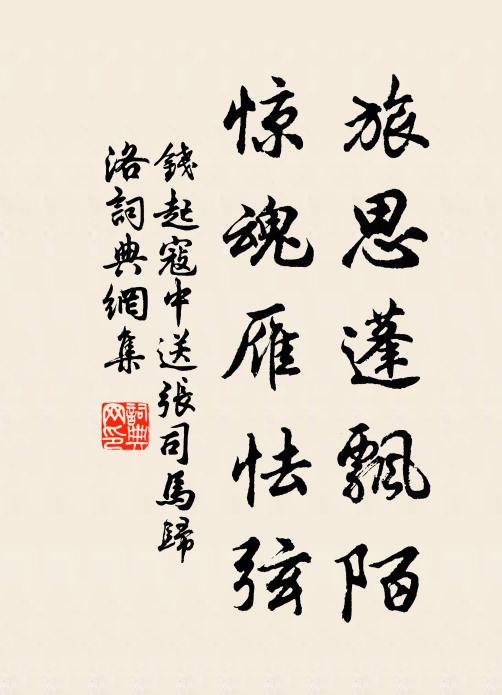 旅思蓬飄陌
惊魂雁怯弦
錢起寇中送張司馬歸
洛詞典網集
詞典网印